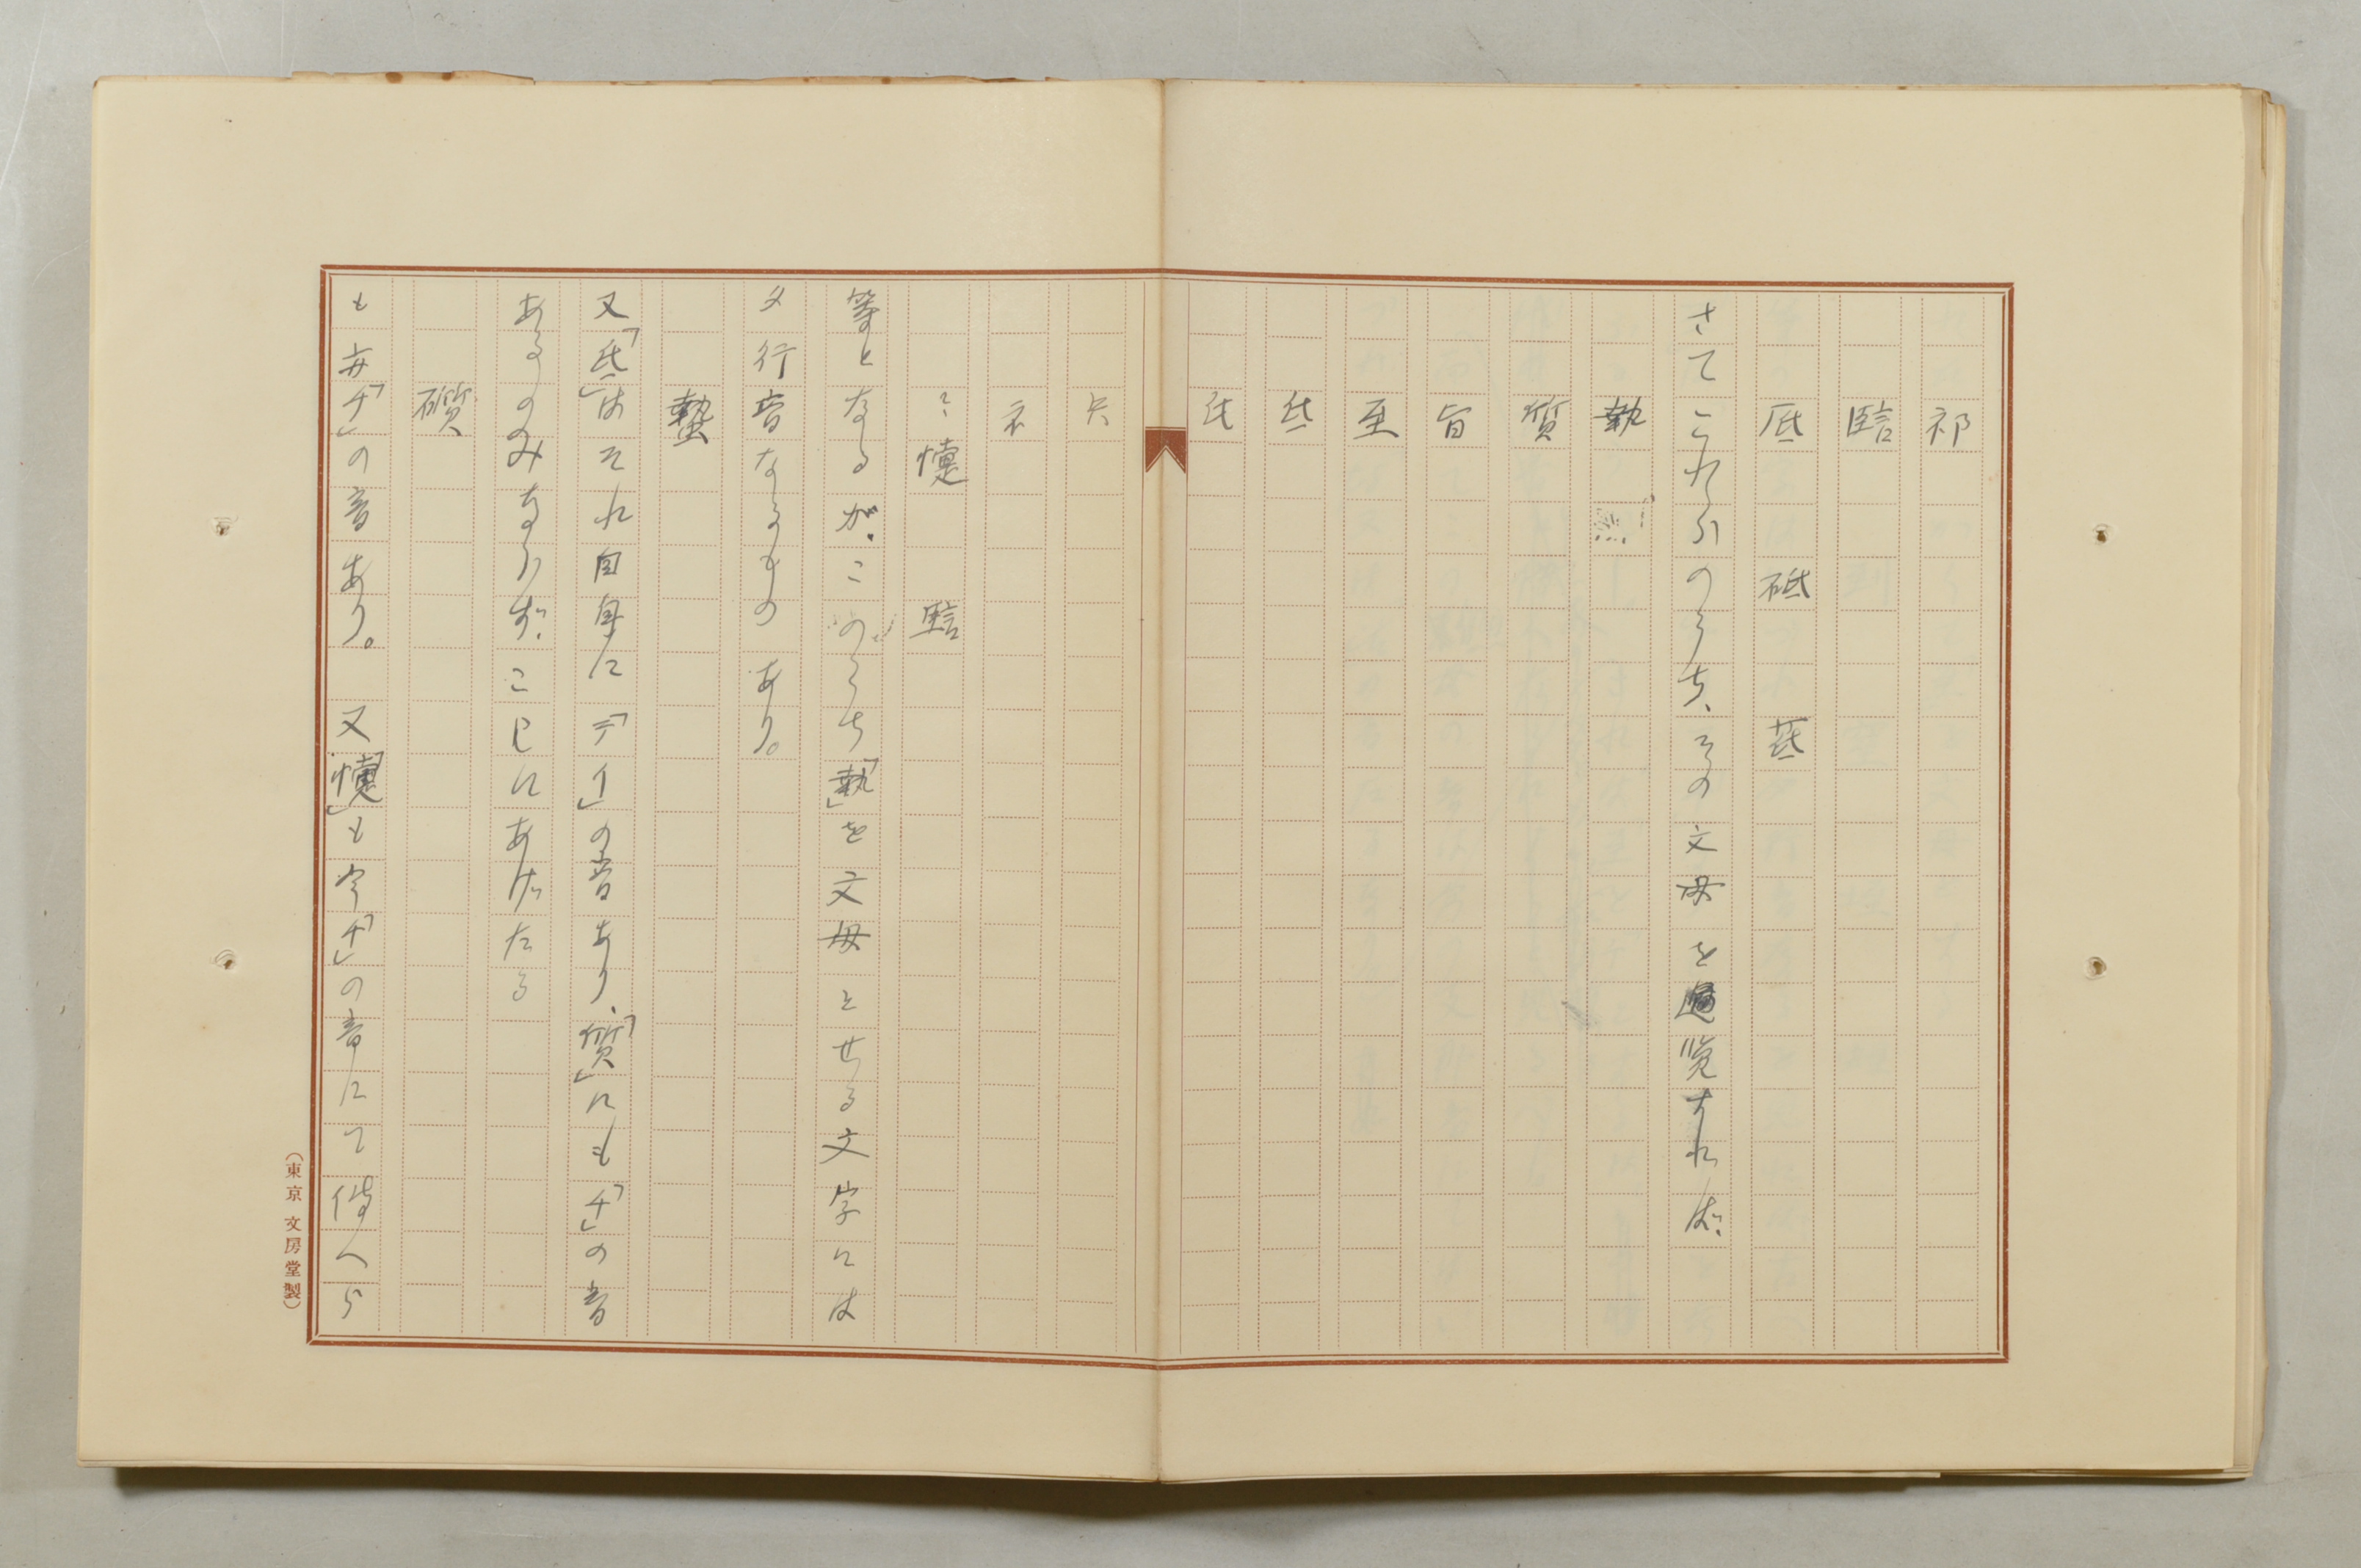 祁
𧦧
厎　砥　茋
さてこれらのうち、その文母を通覧すれば、
執
質
旨
至
氐
氏
尺
ネ
〻　懥　𧦧
等となるが、このうち「執」を文母とせる文字には
タ行音なるものあり。
蟄
又「氐」はそれ自身に「テイ」の音あり、「質」にも「チ」の音
あるのみならず、こゝにあげたる
礩
も亦「チ」の音あり。　又「懥」も今「チ」の音にて傳へら
(東京文房堂製)